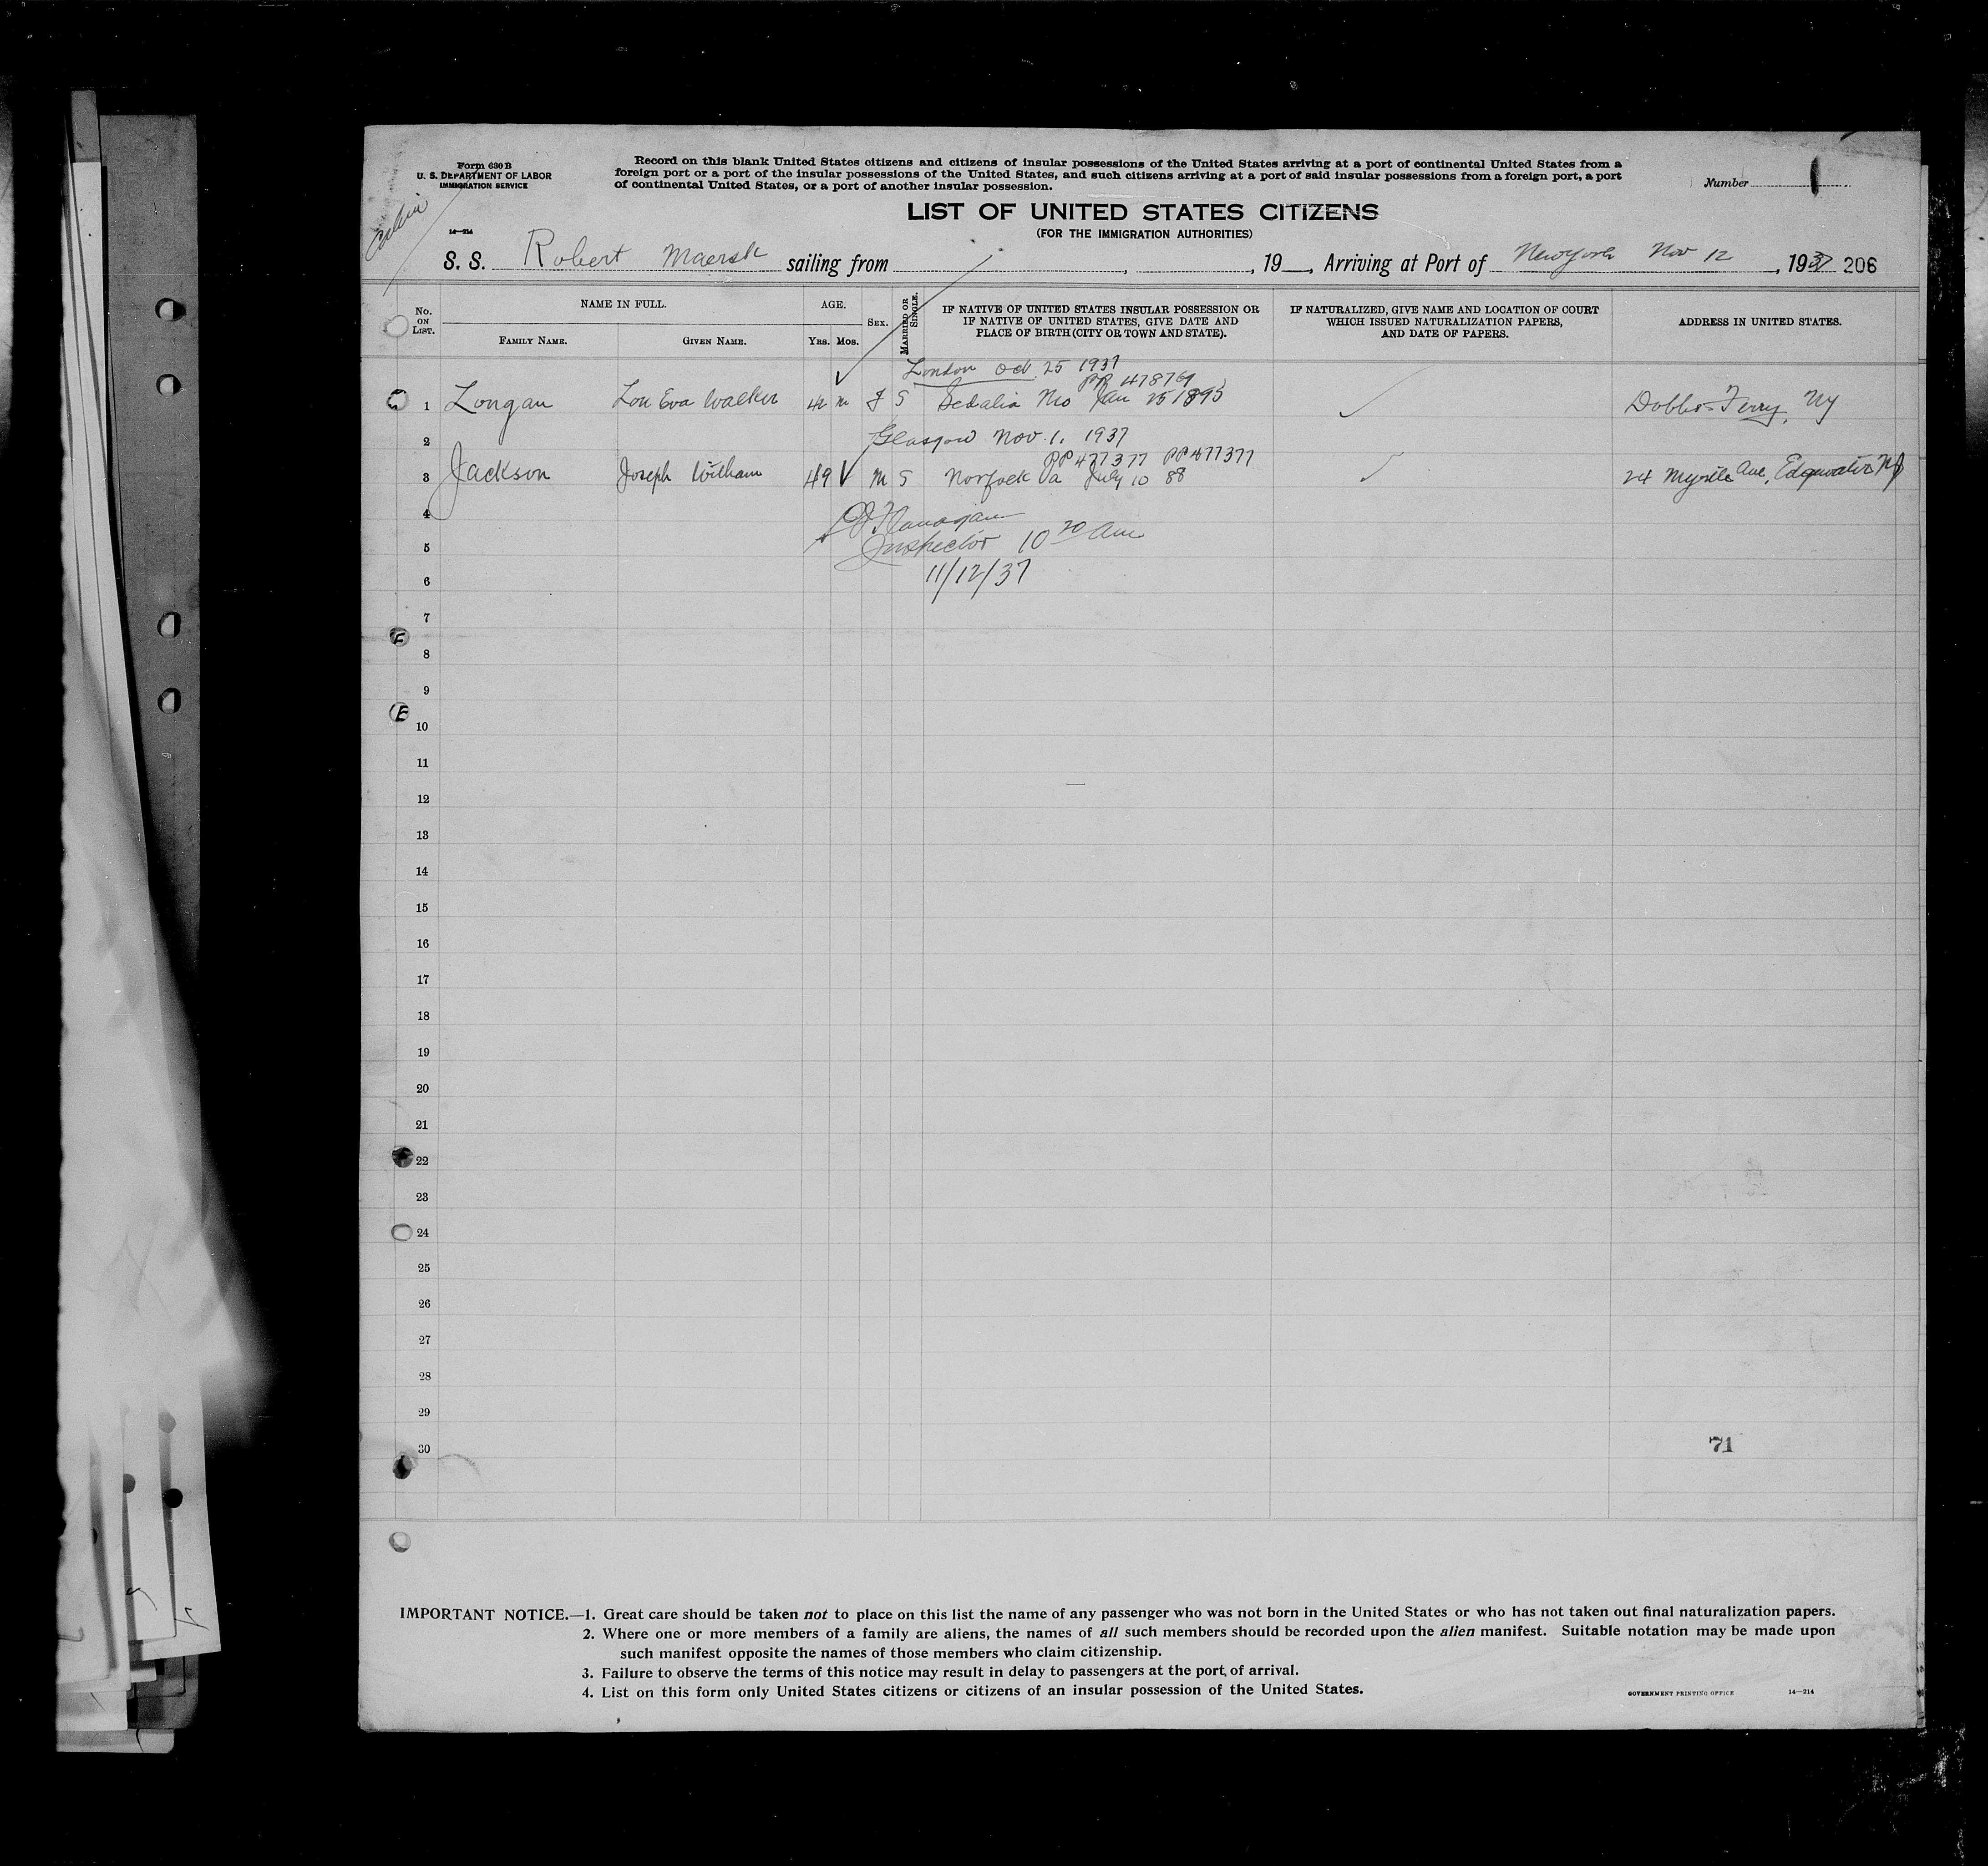 Form 630 B
U. S. DEPARTMENT OF LABOR
IMMIGRATION SERVICE
Record on this blank United States citizens and citizens of insular possessions of the United States arriving at a port of continental United States from a
foreign port or a port of the insular possessions of the United States, and such citizens arriving at a port of said insular possessions from a foreign port, a port
of continental United States, or a port of another insular possession.
Number 1
Cabin
LIST OF UNITED STATES CITIZENS
(FOR THE IMMIGRATION AUTHORITIES)
14—214
S. S. Robert Maersk sailing from , , 19 , Arriving at Port of New York Nov 12 , 1937 206
No. ON LIST.
NAME IN FULL.
FAMILY NAME.
GIVEN NAME.
AGE.
YRS. MOS.
SEX.
MARRIED OR SINGLE.
IF NATIVE OF UNITED STATES INSULAR POSSESSION OR
IF NATIVE OF UNITED STATES, GIVE DATE AND
PLACE OF BIRTH (CITY OR TOWN AND STATE).
IF NATURALIZED, GIVE NAME AND LOCATION OF COURT
WHICH ISSUED NATURALIZATION PAPERS,
AND DATE OF PAPERS.
ADDRESS IN UNITED STATES.
London Oct. 25 1937
PP 478769
1 Longan Lou Eva Walker 42 F S Sedalia Mo Jan 25 1895 Dobbs Ferry, NY
2 Glasgow Nov. 1. 1937
PP 477377 PP 477377
3 Jackson Joseph William 49 M S Norfolk Va July 10 88 24 Myrtle Ave, Edgewater NJ
4 Flanagan
5 Inspector 10 20 Am
6 11/12/37
7
8
9
10
11
12
13
14
15
16
17
18
19
20
21
22
23
24
25
26
27
28
29
30
71
IMPORTANT NOTICE.—1. Great care should be taken not to place on this list the name of any passenger who was not born in the United States or who has not taken out final naturalization papers.
2. Where one or more members of a family are aliens, the names of all such members should be recorded upon the alien manifest. Suitable notation may be made upon
such manifest opposite the names of those members who claim citizenship.
3. Failure to observe the terms of this notice may result in delay to passengers at the port of arrival.
4. List on this form only United States citizens or citizens of an insular possession of the United States.
GOVERNMENT PRINTING OFFICE 14—214